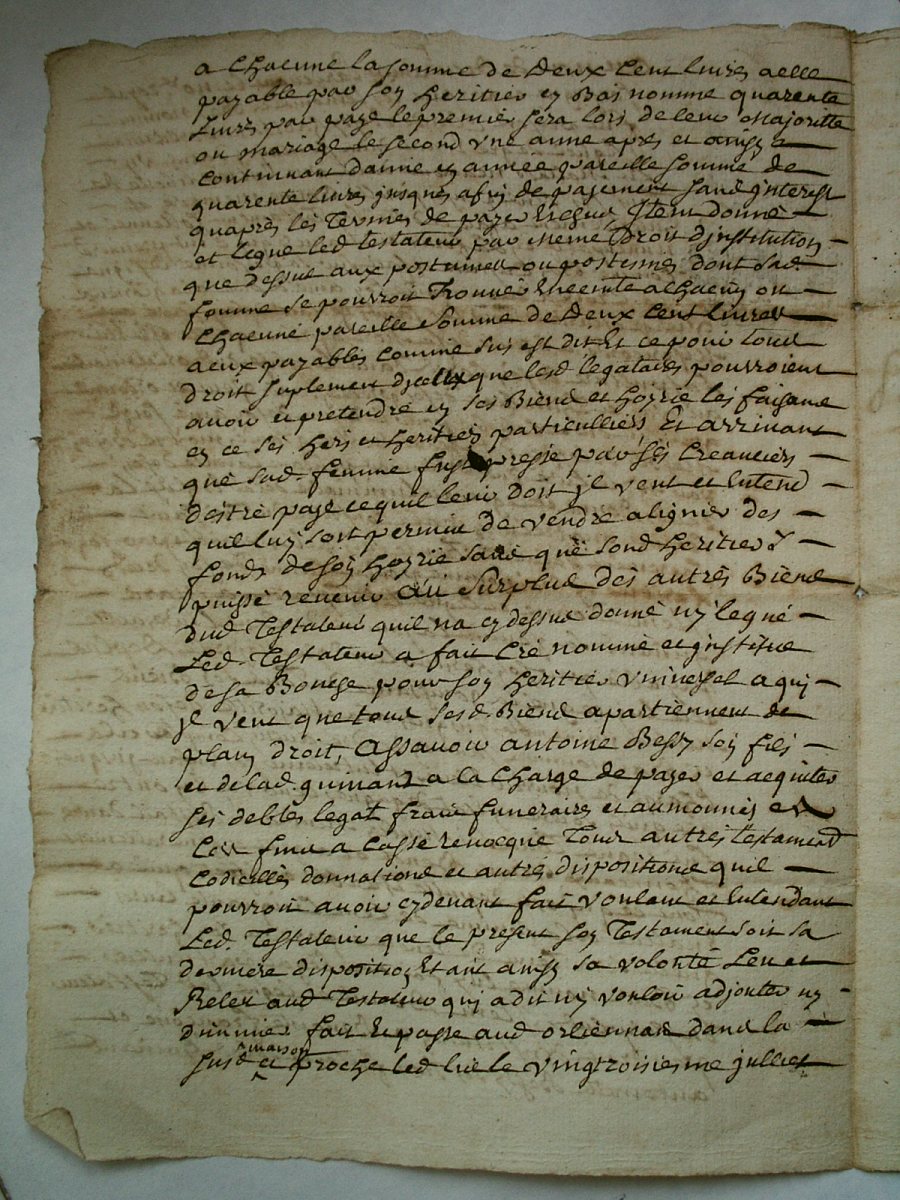 a Chacune la somme de deux Cent livres a elle
payable par son heritier cy Bas nomme quarente
Livres par paye le premier sera lors de leur Majoritte
ou mariage le second une anne apres et ainsy
continuant dannee en annee pareille somme de
quarente livres jusques a fin de payement sans jnterest
quapres les Termes de paye Escheus Jtem donne
et legue led testateur par meme Droit djnstitution
que dessus aux postumes ou postumes dont sad
femme se pourroit Trouver Enceinte a Chacun ou
Chacune pareille somme de deux Cent livres
a eux payables comme sus est dit Et ce pour tous
droit suplement djceux que lesd legataires pourroient
avoir et pretendre en ses Biens et hoyrie les faisans
en ce ses hers et heritiers particulliers Et arrivant
que sad femme fust presse par ses Creanciers
destre paye ce quil leur doit jl veut et Entend
quil luy soit permis de vendre aligner des
fonds de son hoyrie sans que sond heritier y
puisse revenir Au surplus des autres Biens
dud Testateur quil na cy dessus donne ny legue
Led Testateur a fait Cre nomme et jnstitue
de sa Bouche pour son heritier universel a qui
jl veut que tous sesd Biens apartiennent de
plain droit, Assavoir antoine Bessy son fils
et de lad guinand a la Charge de payer et acquiter
ses debtes legat frais funeraires et aumonnes et
a Casse revocque Tous autres testament
Codicelles donnations et autres dispositions quil
pourroit avoir cy devant fait voulant et Entendant
Led Testateur que le present son Testament soit sa
derniere disposition Etant ainsy sa volonté Leu et
Releu aud Testateur qui a dit ny vouloir adjouter ny
diminuer fait Et passe aud orliennas dans la
susd maison et proche led lit le vingtroisiesme juillet